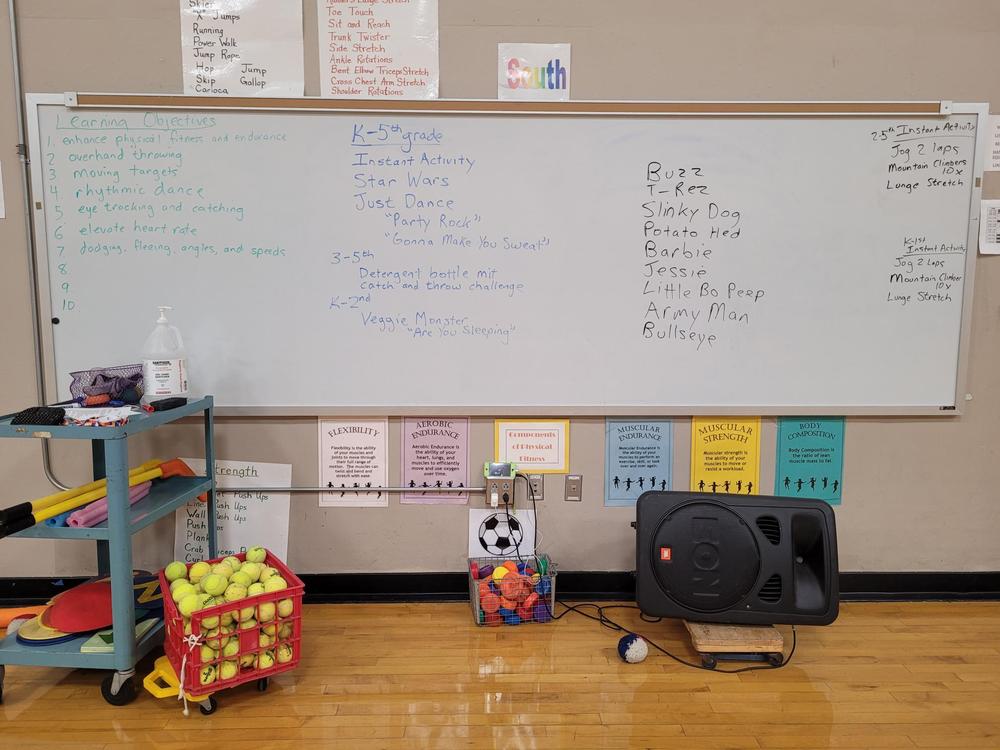 Skier
"X" Jumps
Running
Power Walk
Jump Rope
Hop Jump
Skip Gallop
Carioca
Toe Touch
Sit and Reach
Trunk Twister
Side Stretch
Ankle Rotations
Bent Elbow Triceps Stretch
Cross Chest Arm Stretch
Shoulder Rotations
South
Learning Objectives
1. enhance physical fitness and endurance
2 overhand throwing
3 moving targets
4. rhythmic dance
5 eye tracking and catching
6 elevate heart rate
7 dodging, fleeing, angles, and speeds
8
9
10
K-5th grade
Instant Activity
Star Wars
Just Dance
"Party Rock"
"Gonna Make You Sweat"
3-5th
Detergent bottle mit
catch and throw challenge
K-2nd
Veggie Monster
"Are You Sleeping"
Buzz
T-Rez
Slinky Dog
Potato Hed
Barbie
Jessie
Little Bo Peep
Army Man
Bullseye
2-5th Instant Activity
Jog 2 laps
Mountain Climbers
10x
Lunge Stretch
K-1st
Instant Activity
Jog 2 Laps
Mountain Climber
10x
Lunge Stretch
FLEXIBILITY
Flexibility is the ability
of your muscles and
joints to move through
their full range of
motion. The muscles can
twist and bend and
stretch with ease.
AEROBIC
ENDURANCE
Aerobic Endurance is
the ability of your
heart, lungs, and
muscles to efficiently
move and use oxygen
over time.
Components
of Physical
Fitness
MUSCULAR
ENDURANCE
Muscular Endurance is
the ability of your
muscles to perform an
exercise, skill, or task
over and over again.
MUSCULAR
STRENGTH
Muscular strength is
the ability of your
muscles to move or
resist a workload.
BODY
COMPOSITION
Body Composition is
the ratio of lean
muscle mass to fat.
Strength
Push Ups
Line Push Ups
Wall Push Ups
Push Ups
Plank
Crab Triceps
Curl
JBL
EON